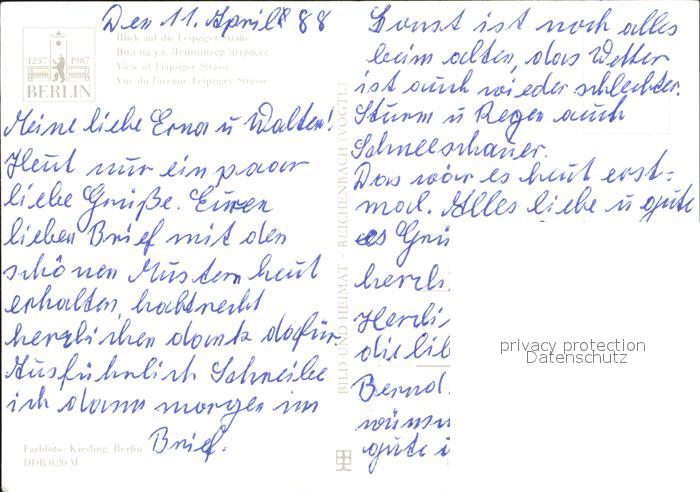 Den 11. April 88
Blick auf die Leipziger Straße
Вид на ул. Лейпцигер штрассе
View of Leipziger Strasse
Vue du l'avenue Leipziger Strasse
1237 1987
BERLIN
Meine liebe Erna u Walter!
Heut nur ein paar
liebe Grüße. Euren
lieben Brief mit den
schönen Mustern heut
erhalten, habt recht
herzlichen dank dafür
Ausführlich Schreibe
ich dann morgen im
Brief.
Farbfoto: Kieding, Berlin
DDR 0,20 M
BILD UND HEIMAT · REICHENBACH (VOGTL)
Sonst ist noch alles
beim alten, das Wetter
ist auch wieder schlechter.
Sturm u Regen auch
Schneeschauer.
Das wär es heut erst=
mal. Alles liebe u gute
es Grü
herzli
Herzli
die lib
Bernd.
wünsc
gute i
privacy protection
Datenschutz